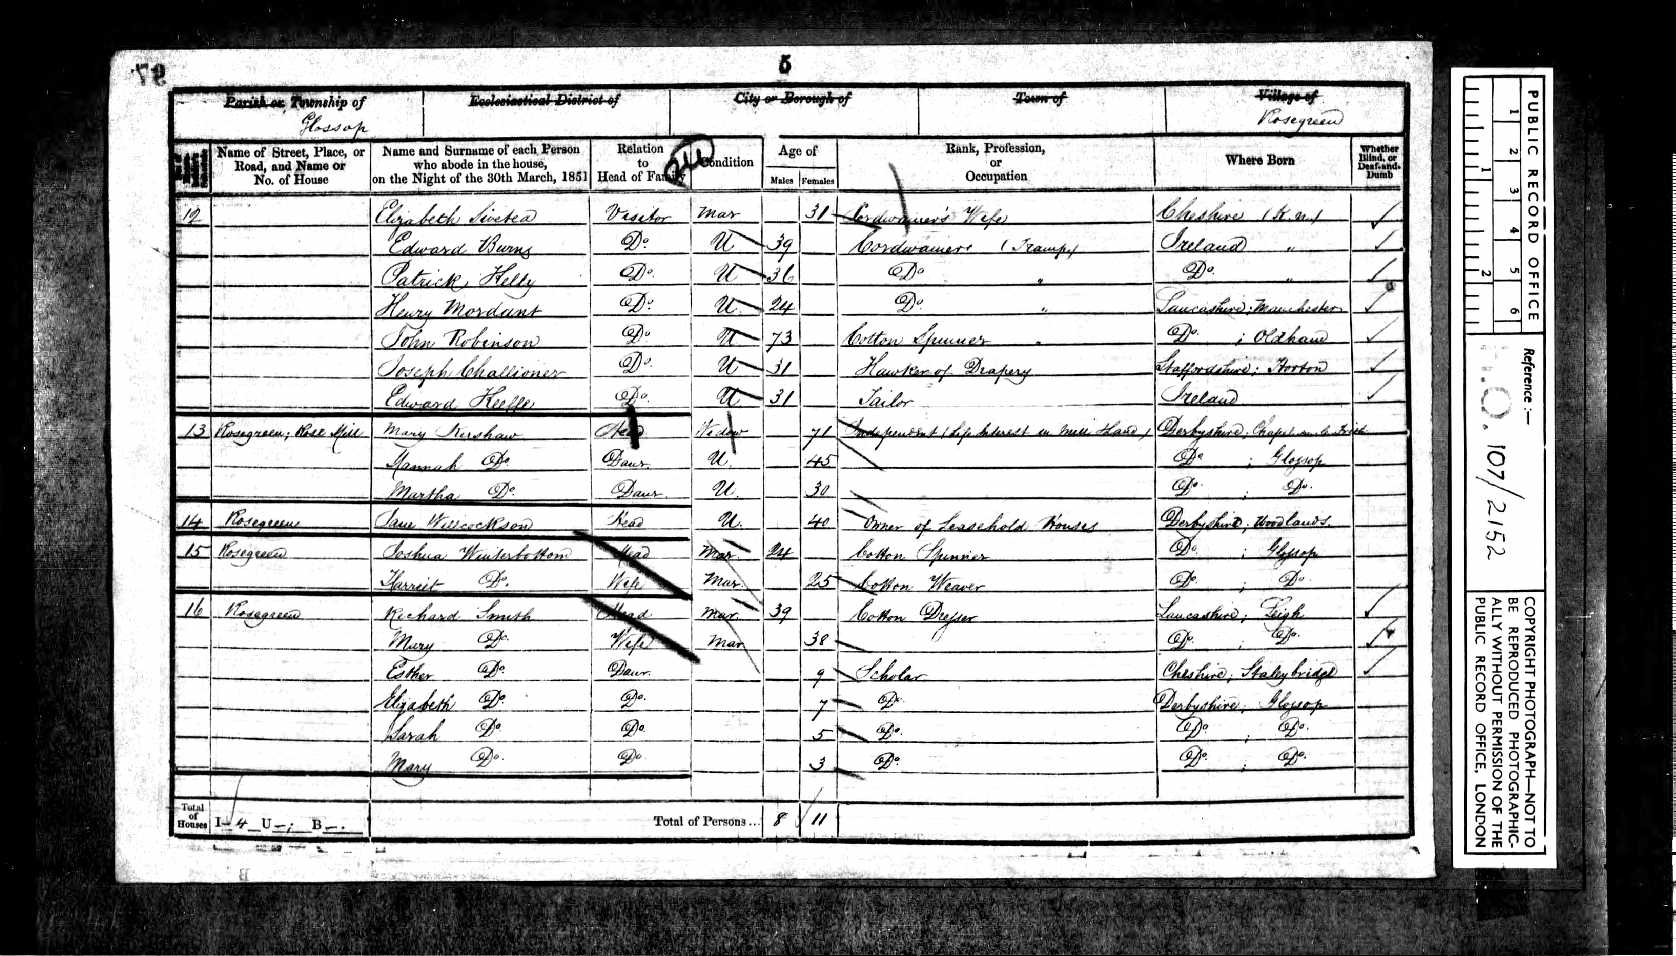 97
5
Parish or Township of
Glossop
Ecclesiastical District of
City or Borough of
Town of
Village of
Rosegreen
Name of Street, Place, or Road, and Name or No. of House
Name and Surname of each Person who abode in the house, on the Night of the 30th March, 1851
Relation to Head of Family
Condition
Age of
Males Females
Rank, Profession, or Occupation
Where Born
Whether Blind, or Deaf-and-Dumb
12 Elizabeth Visitor Mar 31 Cordwainer's Wife Cheshire (K.n.)
Edward Burns Do. U 39 Cordwainer (Tramp) Ireland "
Patrick Kelly Do. U 36 Do " Do. "
Henry Mordant Do. U 24 Do. " Lancashire; Manchester
John Robinson Do U 73 Cotton Spinner " Do. ; Oldham
Joseph Challioner Do. U 31 Hawker of Drapery Staffordshire; Horton
Edward Keeffe Do. U 31 Tailor Ireland
13 Rosegreen; Rose Mill Mary Kershaw Head Widow 71 Independent (Life Interest in Mill & Land) Derbyshire; Chapel en le Frith
Hannah Do. Daur. U. 45 Do ; Glossop
Martha Do. Daur U. 30 Do. ; Do.
14 Rosegreen Jane Willcockson Head U. 40 Owner of Leasehold Houses Derbyshire; Woodlands.
15 Rosegreen Joshua Winterbottom Head Mar. 24 Cotton Spinner Do. ; Glossop
Harreit Do. Wife Mar. 25 Cotton Weaver Do. ; Do
16 Rosegreen Richard Smith Head Mar. 39 Cotton Dresser Lancashire; Leigh
Mary Do. Wife Mar 38 Do. ; Do.
Esther Do. Daur. 9 Scholar Cheshire; Staleybridge
Elizabeth Do. Do. 7 Do. Derbyshire; Glossop
Sarah Do. Do. 5 Do. Do ; Do.
Mary Do. Do 3 Do. Do ; Do.
Total of Houses I–4 U–; B–.
Total of Persons... 8 11
PUBLIC RECORD OFFICE
1 2 3 4 5 6
1 2
Reference :—
H.O. 107/2152
COPYRIGHT PHOTOGRAPH—NOT TO
BE REPRODUCED PHOTOGRAPHIC-
ALLY WITHOUT PERMISSION OF THE
PUBLIC RECORD OFFICE, LONDON